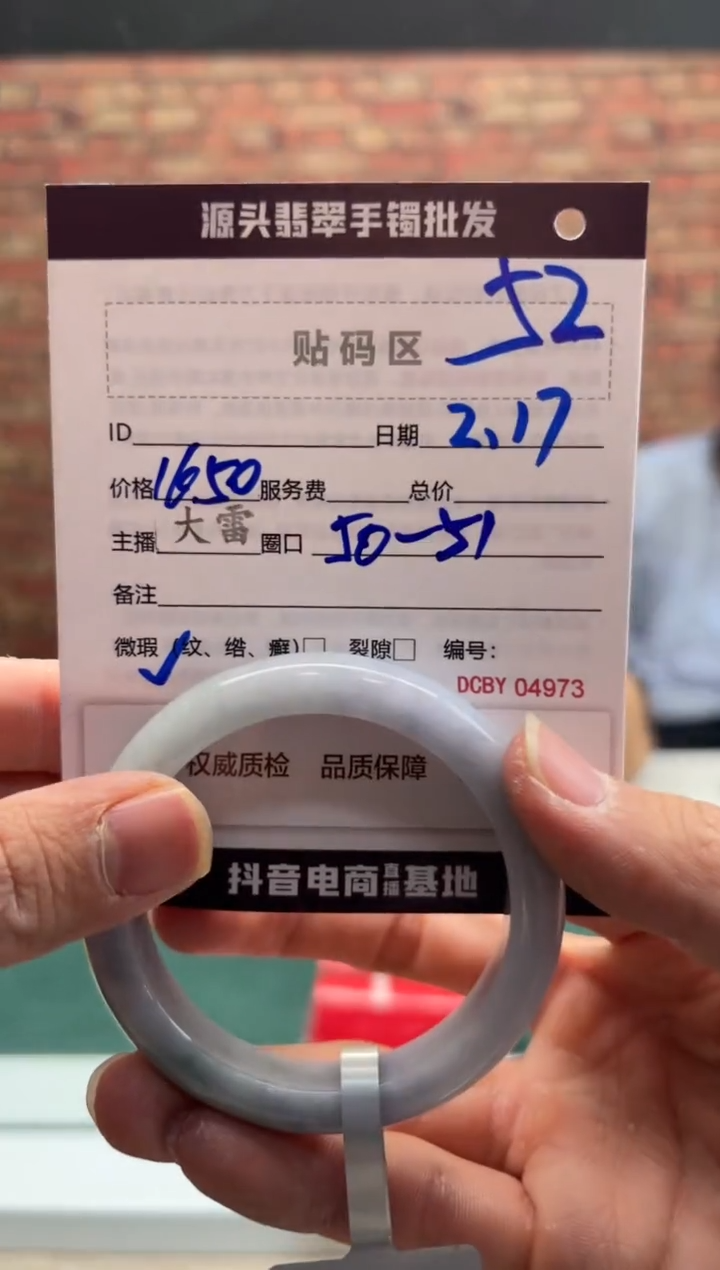 源头翡翠手镯批发
贴码区 52
ID 日期 2.17
价格 1650 服务费 总价
主播 大雷 圈口 50-51
备注
微瑕(纹、绺、癣)□ 裂隙□ 编号:
✓
DCBY 04973
权威质检 品质保障
抖音电商直播基地